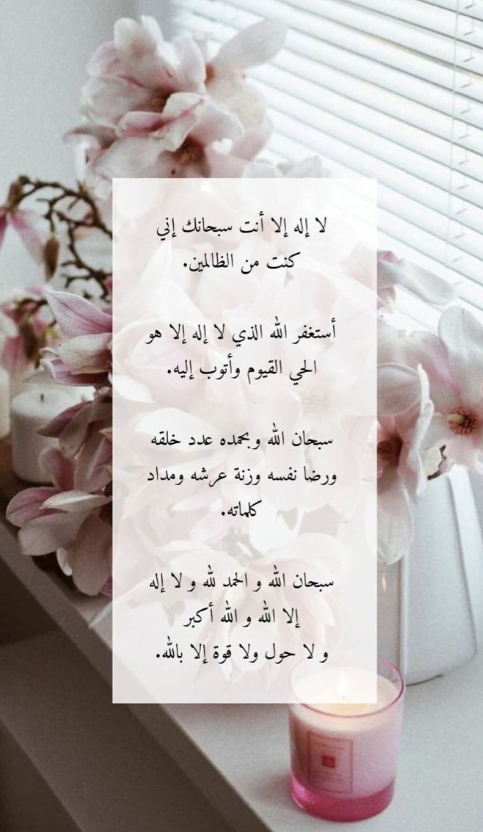 لا إله إلا أنت سبحانك إني
كنت من الظالمين.
أستغفر الله الذي لا إله إلا هو
الحي القيوم وأتوب إليه.
سبحان الله وبحمده عدد خلقه
ورضا نفسه وزنة عرشه ومداد
كلماته.
سبحان الله و الحمد لله و لا إله
إلا الله و الله أكبر
و لا حول ولا قوة إلا بالله.